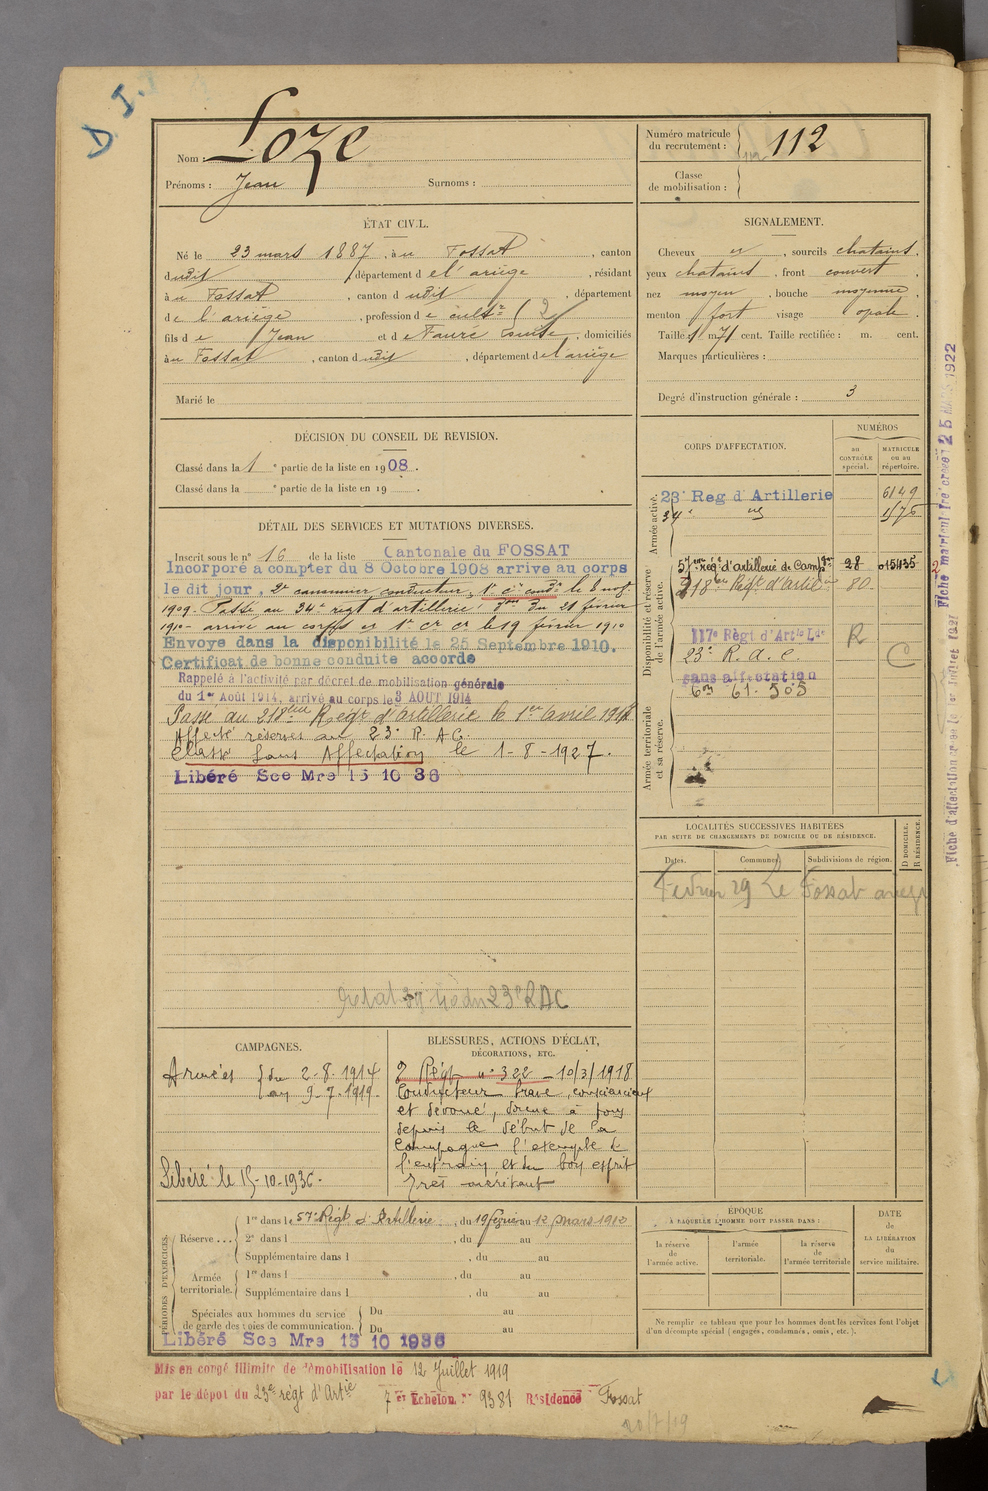 D I.
Nom : Loze
Prénoms : Jean Surnoms :
Numéro matricule du recrutement : 112
Classe de mobilisation :
ÉTAT CIVIL.
Né le 23 mars 1887, à u Fossat, canton
dudit, département de l'ariège, résidant
à u Fossat, canton d udit, département
de l'ariège, profession de cult.r (2
fils de Jean et de Faure Louise, domiciliés
à u Fossat, canton dudit, département de l'ariège
Marié le
SIGNALEMENT.
Cheveux et, sourcils chatains,
yeux chatains, front couvert,
nez moyen, bouche moyenne,
menton fort visage opale.
Taille : 1 m. 71 cent. Taille rectifiée : m. cent.
Marques particulières :
Degré d'instruction générale : 3
DÉCISION DU CONSEIL DE REVISION.
Classé dans la 1e partie de la liste en 1908.
Classé dans la e partie de la liste en 19 .
DÉTAIL DES SERVICES ET MUTATIONS DIVERSES.
Inscrit sous le n° 16 de la liste Cantonale du FOSSAT
Incorporé à compter du 8 Octobre 1908 arrive au corps
le dit jour, 2e canonnier conducteur, 1er cr condr le 8 nov.
1909. Passé au 34e régt d'artillerie, don du 21 février
1910 - arrivé au corps et 1er cr cr le 19 février 1910
Envoyé dans la disponibilité le 25 Septembre 1910.
Certificat de bonne conduite accordé
Rappelé à l'activité par décret de mobilisation générale
du 1er Août 1914, arrivé au corps le 3 AOUT 1914
Passé au 218ème Régt d'artillerie le 1er avril 1917
Affecté réserves au 23e R.A.C.
Classé Sans Affectation le 1-8-1927.
Libéré Sce Mre 15 10 36
23e RAC
CORPS D'AFFECTATION.
NUMÉROS
au CONTRÔLE spécial.
MATRICULE ou au répertoire.
Armée active.
23e Reg d'Artillerie 6149
34e 1/76
Disponibilité et réserve de l'armée active.
57me régt d'artillerie de Campgne 28 015435
218me Régt d'artie 80
117e Régt d'Artie Lde R
23e R.a.c. C
sans affectation
603 61.505
Armée territoriale et sa réserve.
LOCALITÉS SUCCESSIVES HABITÉES
PAR SUITE DE CHANGEMENTS DE DOMICILE OU DE RÉSIDENCE.
Dates. Communes. Subdivisions de région. D DOMICILE. R RÉSIDENCE.
Fevrier 29 Le Fossat
CAMPAGNES.
Armées du 2-8-1914
au 9-7-1919.
Libéré le 15-10-1936.
BLESSURES, ACTIONS D'ÉCLAT,
DÉCORATIONS, ETC.
O Régt n° 322 - 10/3/1918
Conducteur brave, consciencieux
et dévoué, donne à tous
depuis le début de la
Campagne l'exemple de
l'entrain et du bon esprit
Très méritant
PÉRIODES D'EXERCICES.
Réserve . . . 1re dans le 57e Régt d'Artillerie, du 19 février au 12 mars 1912
2e dans l , du au
Supplémentaire dans l , du au
Armée territoriale. 1re dans l , du au
Supplémentaire dans l , du au
Spéciales aux hommes du service de garde des voies de communication. Du au
Du au
Libéré Sce Mre 15 10 1936
ÉPOQUE
À LAQUELLE L'HOMME DOIT PASSER DANS :
la réserve de l'armée active.
l'armée territoriale.
la réserve de l'armée territoriale
DATE de LA LIBÉRATION du service militaire.
Ne remplir ce tableau que pour les hommes dont les services font l'objet
d'un décompte spécial (engagés, condamnés, omis, etc.).
Mis en congé illimité de démobilisation le 12 Juillet 1919
par le dépôt du 23e régt d'Artie 7e Echelon N° 9381 Résidence Fossat
20/7/19
Fiche matricule créé 25 MARS 1922
Fiche d'affectation créée le 1er Juillet 1921